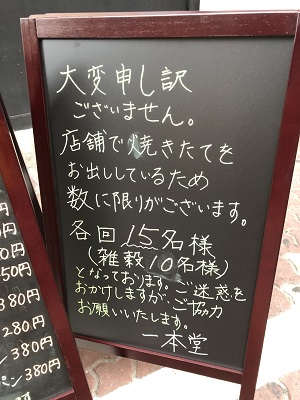 大変申し訳
ございません。
店舗で焼きたてを
お出ししているため
数に限りがございます。
各回15名様
(雑穀10名様)
となっております。ご迷惑を
おかけしますが、ご協力
お願いいたします。
一本堂
380円
280円
380円
パン380円